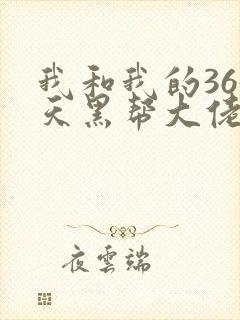 我和我的36
天黑帮大佬
夜雲端